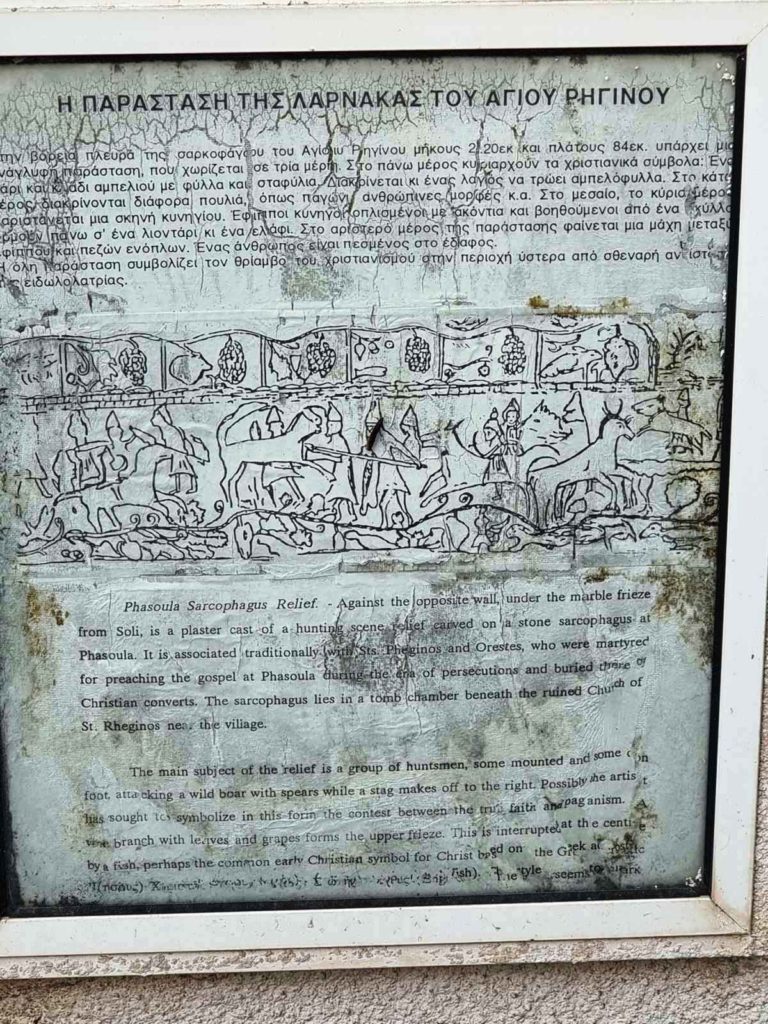 Η ΠΑΡΑΣΤΑΣΗ ΤΗΣ ΛΑΡΝΑΚΑΣ ΤΟΥ ΑΓΙΟΥ ΡΗΓΙΝΟΥ
την βόρεια πλευρά της σαρκοφάγου του Αγίου Ρηγίνου μήκους 2,20εκ και πλάτους 84εκ. υπάρχει
ανάγλυφη παράσταση, που χωρίζεται σε τρία μέρη. Στο πάνω μέρος κυριαρχούν τα χριστιανικά σύμβολα: Ένα
άρι και κλαδί αμπελιού με φύλλα και σταφύλια. Διακρίνεται κι ένας λαγός να τρώει αμπελόφυλλα. Στο κάτω
έρος διακρίνονται διάφορα πουλιά, όπως παγώνι, ανθρώπινες μορφές κ.α. Στο μεσαίο, το κύριο μέρος
αριστάνεται μια σκηνή κυνηγίου. Έφιπποι κυνηγοί οπλισμένοι με ακόντια και βοηθούμενοι από ένα
ορμούν πάνω σ' ένα λιοντάρι κι ένα ελάφι. Στο αριστερό μέρος της παράστασης φαίνεται μια μάχη μεταξύ
φίππου και πεζών ενόπλων. Ένας άνθρωπος είναι πεσμένος στο έδαφος.
Η όλη παράσταση συμβολίζει τον θρίαμβο του χριστιανισμού στην περιοχή ύστερα από σθεναρή
της ειδωλολατρίας.
Phasoula Sarcophagus Relief. - Against the opposite wall, under the marble frieze
from Soli, is a plaster cast of a hunting scene relief carved on a stone sarcophagus at
Phasoula. It is associated traditionally with Sts. Pheginos and Orestes, who were martyred
for preaching the gospel at Phasoula during the era of persecutions and buried there by
Christian converts. The sarcophagus lies in a tomb chamber beneath the ruined Church of
St. Rheginos near the village.
The main subject of the relief is a group of huntsmen, some mounted and some on
foot, attacking a wild boar with spears while a stag makes off to the right. Possibly the artist
has sought to symbolize in this form the contest between the true faith and paganism. A
vine branch with leaves and grapes forms the upper frieze. This is interrupted at the centre
by a fish, perhaps the common early Christian symbol for Christ based on the Greek acrostic
fish). The style seems to mark